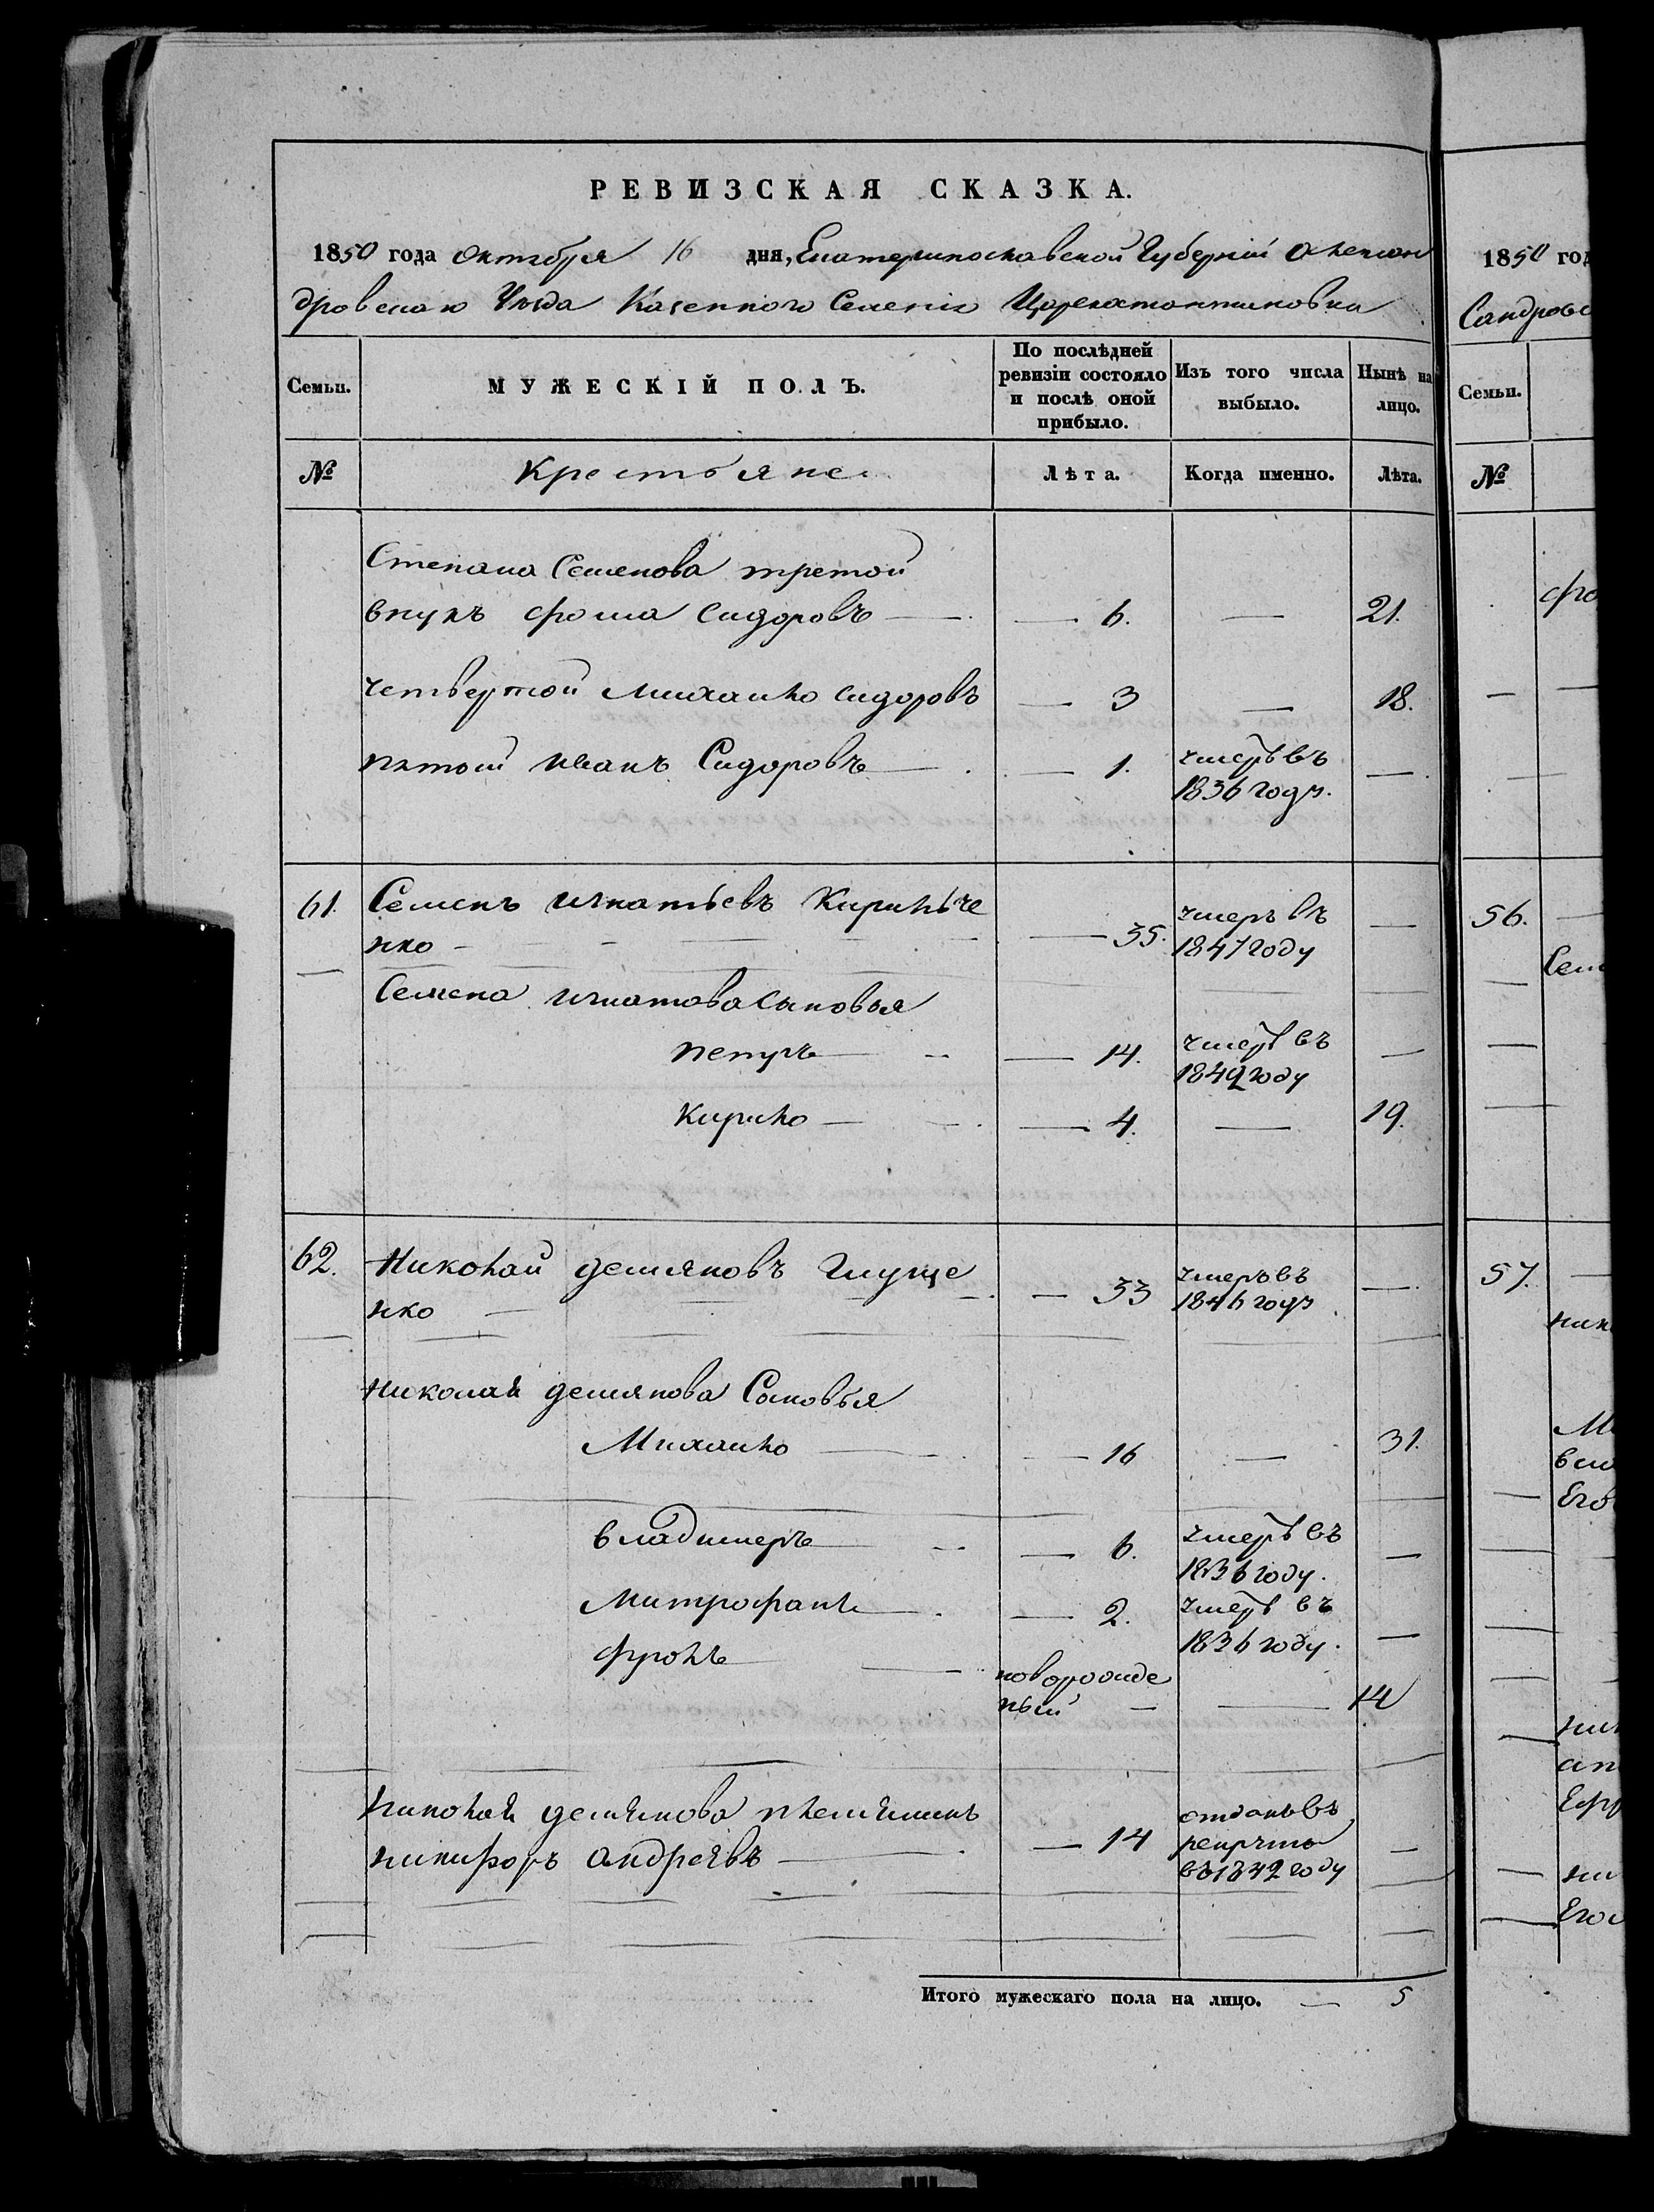 РЕВИЗСКАЯ СКАЗКА.
1850 года Октября 16 дня, Екатеринославской Губерніи Алексан
дровскаго Уезда Казенного Селенія Цареконстантиновки
Семьи. МУЖЕСКІЙ ПОЛЪ. По послѣдней ревизіи состояло и послѣ оной прибыло. Изъ того числа выбыло. Нынѣ на лицо.
№ Крестьяне Лѣта. Когда именно. Лѣта.
Степана Семенова третой
внукъ фома Сидоровъ — 6. — 21.
четвертой Михайло сидоровъ — 3 — 18.
пятой иванъ Сидоровъ — 1. умеръ въ —
1836 году.
61. Семенъ игнатьевъ Кириљче
нко — 35. умеръ въ 1847 году —
Семена игнатова сыновья
петръ — 14. умеръ въ —
1849 году
Кирило — 4. — 19.
62. Николай демяновъ Глуще
нко — 33 умеръ въ 1846 году —
николая демянова Сыновья
Михайло — 16 — 31.
владимеръ — 6. умеръ въ —
1836 году.
Митрофанъ — 2. умеръ въ
1836 году. —
фролъ — новорожде
ный — — 14
николая демянова племяникъ
никифоръ андреевъ — 14 отданъ въ рекруты въ 1842 году —
Итого мужескаго пола на лицо. — 5
1850 год
Сандровс
Семьи.
№
фо
56. —
Сем
57. —
ник
Ми
Его
ник
Ефр
ни
Его